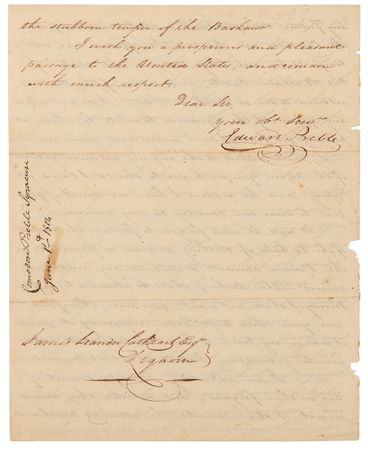 the stubborn temper of the Bashaw
I wish you a prosperous and pleasant
passage to the United States, and remain
with much respect
Dear Sir
your obt Servt
Edward Preble
Comodore Preble Syracuse
June 1st 1804
James Leander Cathcart Esqr
Leghorn